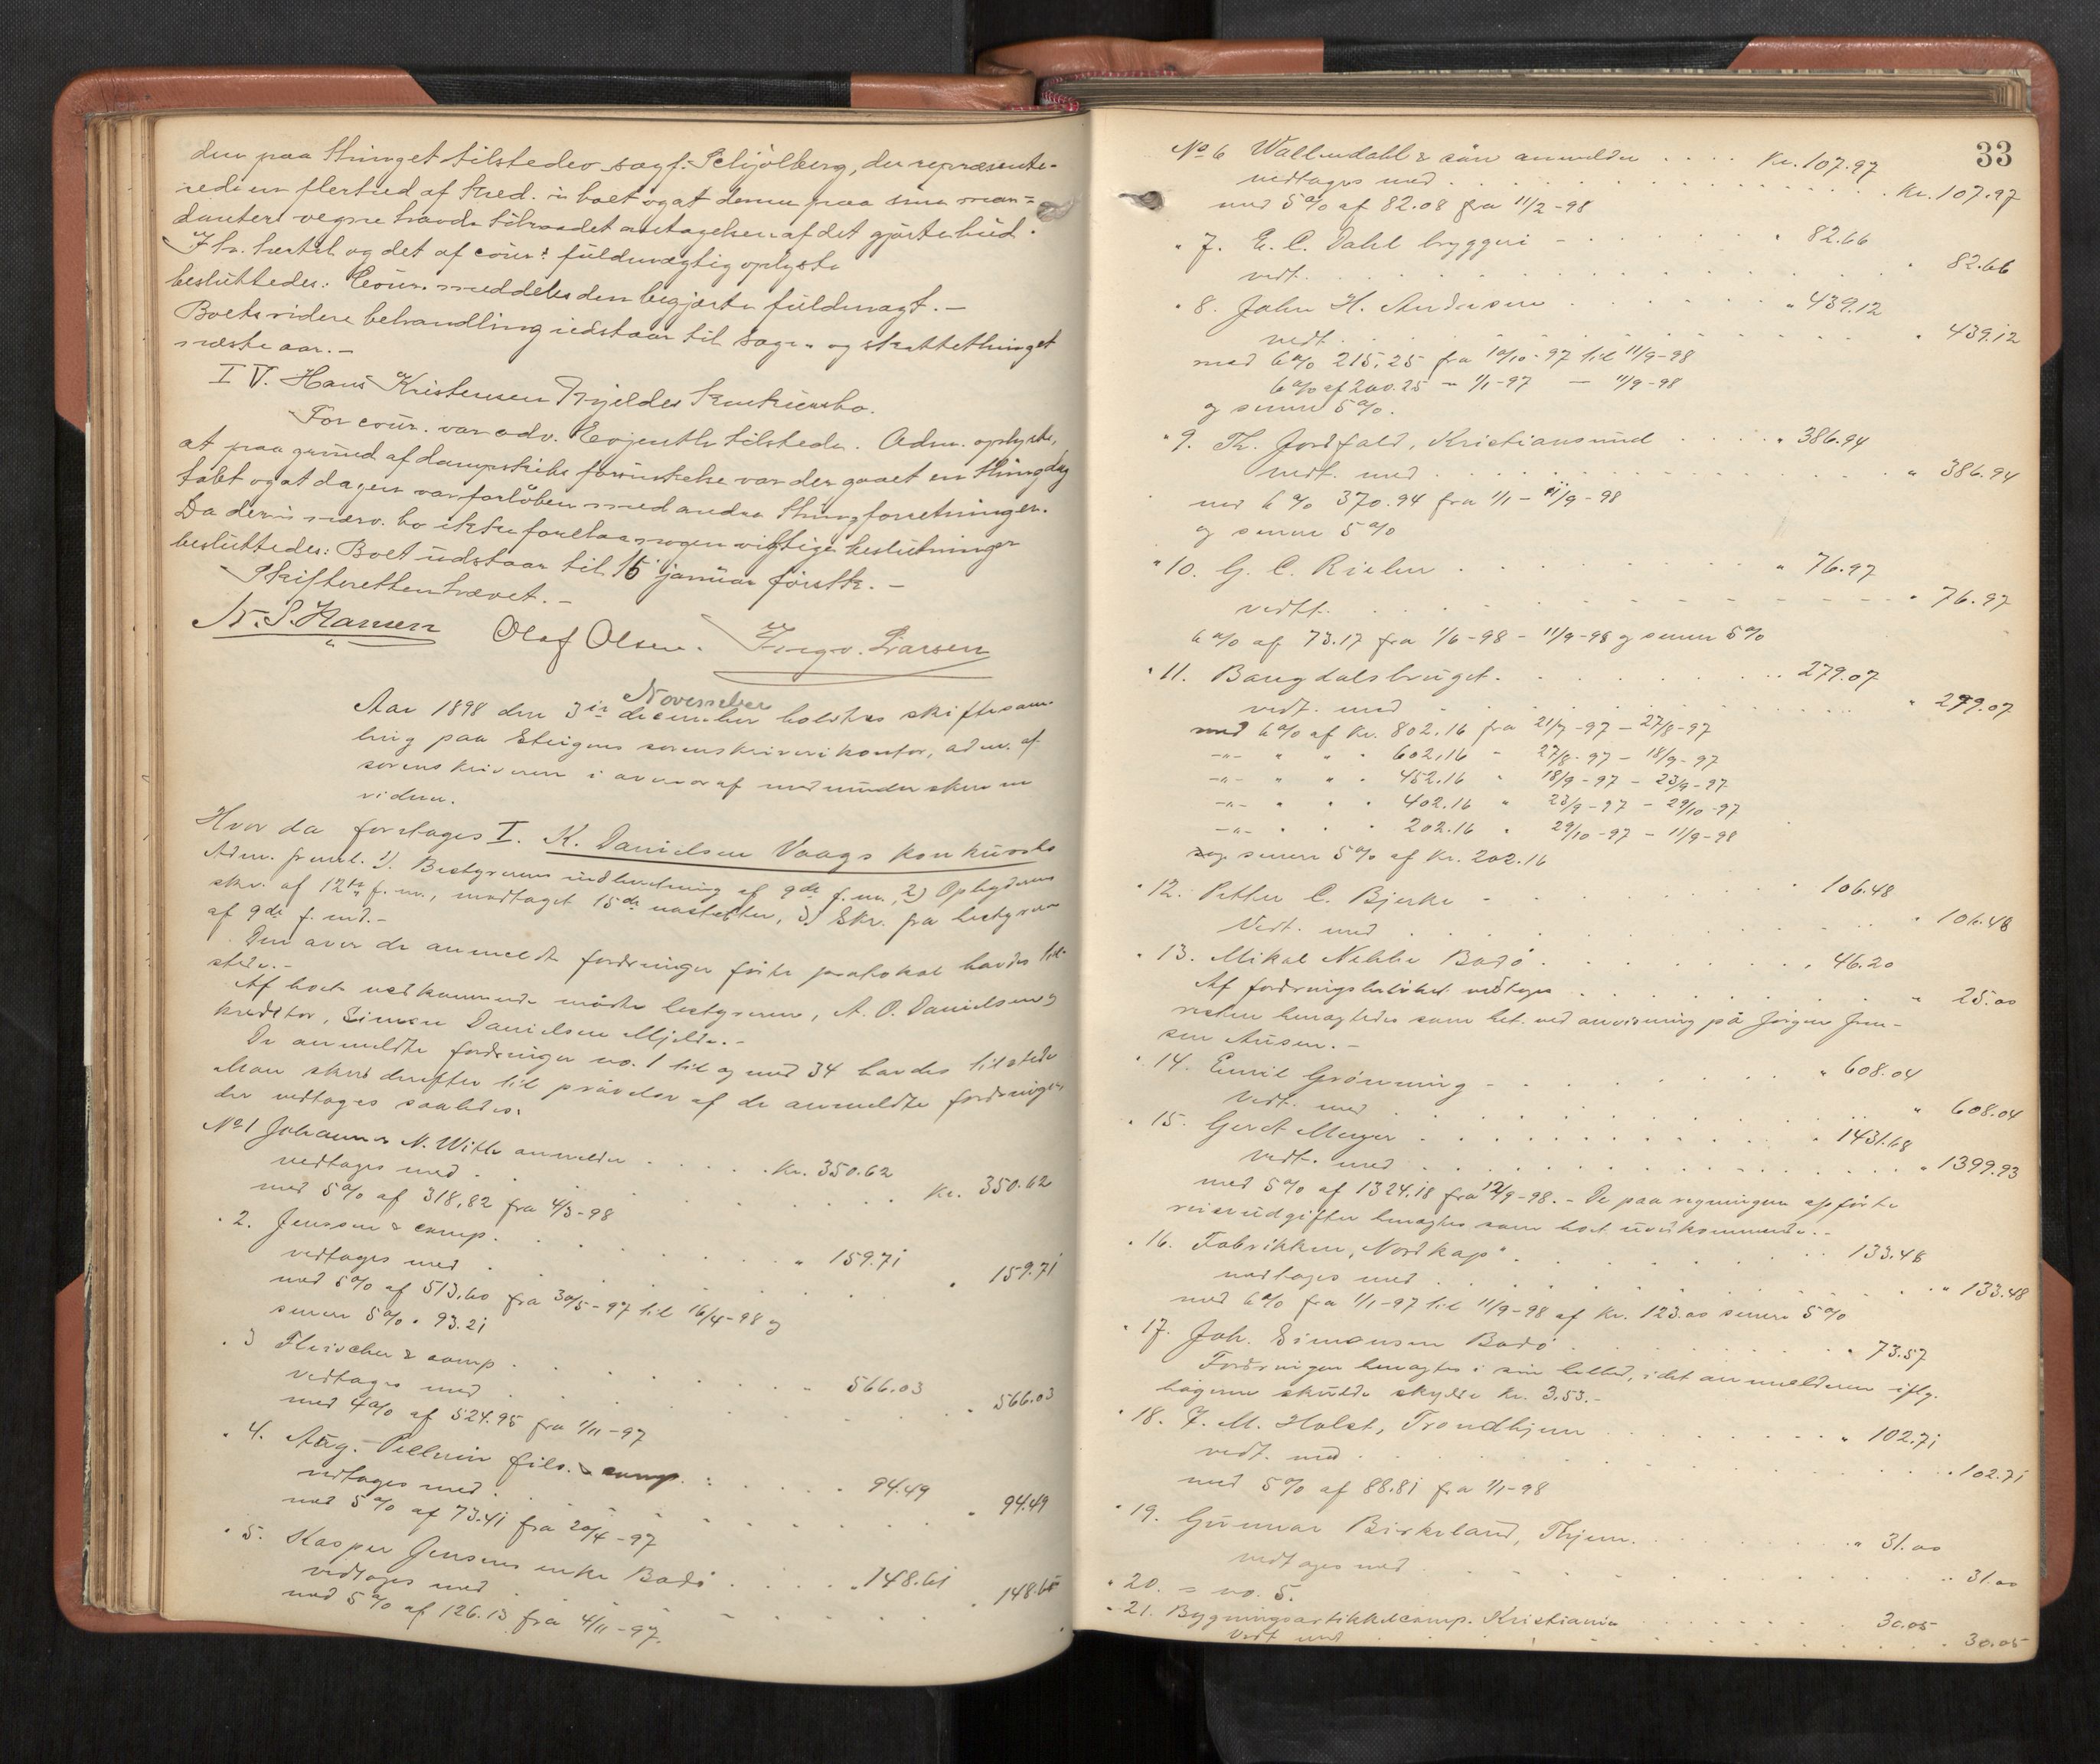 den paa thinget tilstedev. sagf. Schjölberg, der repræsente-
rede en flerhed af kred. i boet og at denne paa sine man-
danters vegne havde tilraadet antagelsen af det gjorte bud.
I h. hertil og det af cour: fuldmægtig oplyste
besluttedes: Cour. meddeles den begjærte fuldmagt. -
Boets videre behandling udstaar til sage- og skattethinget
næste aar. -
IV. Hans Kristensen Kjeldes konkursbo.
For cour. var adv. tilstede. Adm. oplyste,
at paa grund af dampskibs forsinkelse var der gaaet en thingdag
tabt og at dagen var forlöben med andre thingforretninger.
Da der i nærv. bo ikke foretaas nogen vigtige beslutninger
besluttedes: Boet udstaar til 16 januar förstk. -
Skifteretten hævet. -
N. S. Hansen Olaf Olsen. Ingv. Larsen
November
Aar 1898 den 3die december holdtes skiftesam-
ling paa Steigens sorenskriverikontor, adm. af
sorenskriveren i overvær af medunderskrevne
vidner.
Hvor da foretages I. K. Danielsen Vaags konkursbo
Adm. freml. 1). Bestyrerens indberetning af 9de f. m., 2) Opbyderens
skr. af 12te f. m., modtaget 15de næstefter, 3) Skr. fra bestyreren
af 9de f. md. -
Den over de anmeldte fordringer förte protokol havdes til-
stede. -
Af boet vedkommende mödte bestyreren, A. O. Danielsen og
kreditor, Simon Danielsen Mjelde. -
De anmeldte fordringer no. 1 til og med 34 havdes tilstede
Man skred derefter til prövelse af de anmeldte fordringer,
der vedtages saaledes:
No 1 Johannes N. Witte anmelder . . . . . Kr. 350.62
vedtages med . . . . . . Kr. 350.62
med 5% af 318,82 fra 4/3-98
" 2. Jenssen & comp. . . . . . " 159.71
vedtages med . . . . . . " 159.71
med 5% af 513,60 fra 30/5-97 til 16/4-98 og
senere 5% " 93.21
" 3 Fleischer & comp . . . . . " 566.03
vedtages med . . . . . . " 566.03
med 4% af 524.95 fra 1/11-97
" 4. Aug. Pellerin fils. & comp. : . . . . " 94.49
vedtages med . . . . . . " 94.49
med 5% af 73.41 fra 20/4-97
" 5. Kasper Jensens enke Bodö . . . . . " 148.61
vedtages med . . . . . . " 148.61
med 5% af 126.13 fra 4/11-97.
33
No 6 Wallendahl & sön anmelder . . . . Kr. 107.97
vedtages med . . . . . . Kr. 107.97
med 5% af 82.08 fra 11/2-98
" 7. E. C. Dahl bryggeri - . . . . " 82.66
vedt. . . . . . . " 82.66
" 8. John H. Andersen . . . . . " 439.12
vedt. . . . . . . " 439.12
med 6% 215,25 fra 10/10-97 til 11/9-98
6% af 200.25 - 1/1-97 - 11/9-98
og senere 5%.
" 9. Th. Jordfald, Kristiansund . . . . " 386.94
vedt. med . . . . . . " 386.94
med 6% 370.94 fra 1/1 - 11/9-98
og senere 5%
" 10. G. C. Rieber . . . . . " 76.97
vedtt. . . . . . . " 76.97
6% af 73.17 fra 1/6-98 - 11/9-98 og senere 5%
" 11. Bangdalsbruget. . . . . . 279.07
vedt. med . . . . . . " 279.07
med 6% af Kr. 802.16 fra 21/7-97 - 27/8-97
-"- " " " 602,16 - 27/8-97 - 18/9-97
-"- " " " 452.16 " 18/9-97 - 23/9-97
-"- " " " 402.16 " 23/9-97 - 29/10-97
-"- " " " 202.16 " 29/10-97 - 11/9-98
og senere 5% af Kr. 202.16
" 12. Petter C. Bjerke - . . . . 106.48
Vedt. med . . . . . . " 106.48
" 13. Mikal Nekke Bodö . . . . . " 46.20
Af fordringsbelöbet vedtages . . . . . " 25.00
resten benegtedes som bet. ved anvisning på Jörgen Jen-
sen Ausen. -
" 14. Emil Grönning - . . . . " 608.04
Vedt. med . . . . . . " 608.04
" 15. Gerdt Meyer . . . . . " 1431.68
Vedt. med . . . . . . " 1399.93
med 5% af 1324.18 fra 12/9-98. - De paa regningen opförte
reiseudgifter benegtes som boet uvedkommende. -
" 16. Fabrikken "Nordkap" . . . . . 133.48
vedtages med . . . . . . " 133.48
med 6% fra 1/1-97 til 11/9-98 af Kr. 123.00 senere 5%
" 17. Joh. Simonsen Bodö . . . . . " 73.57
Fordringen benegtes i sin helhed, idet anmelderen iflg.
bögerne skulde skylde Kr. 3.53. -
" 18. J. M. Holst, Trondhjem . . . . . " 102.71
vedt. med . . . . . . " 102.71
med 5% af 88.81 fra 1/1-98
" 19. Gunnar Birkeland, Thjem. . . . . . " 31.00
vedtages med . . . . . . " 31.00
" 20. = no. 5.
" 21. Bygningsartikkelcomp. Kristiania . . . . . 30.05
Vedt. med . . . . . . " 30.05